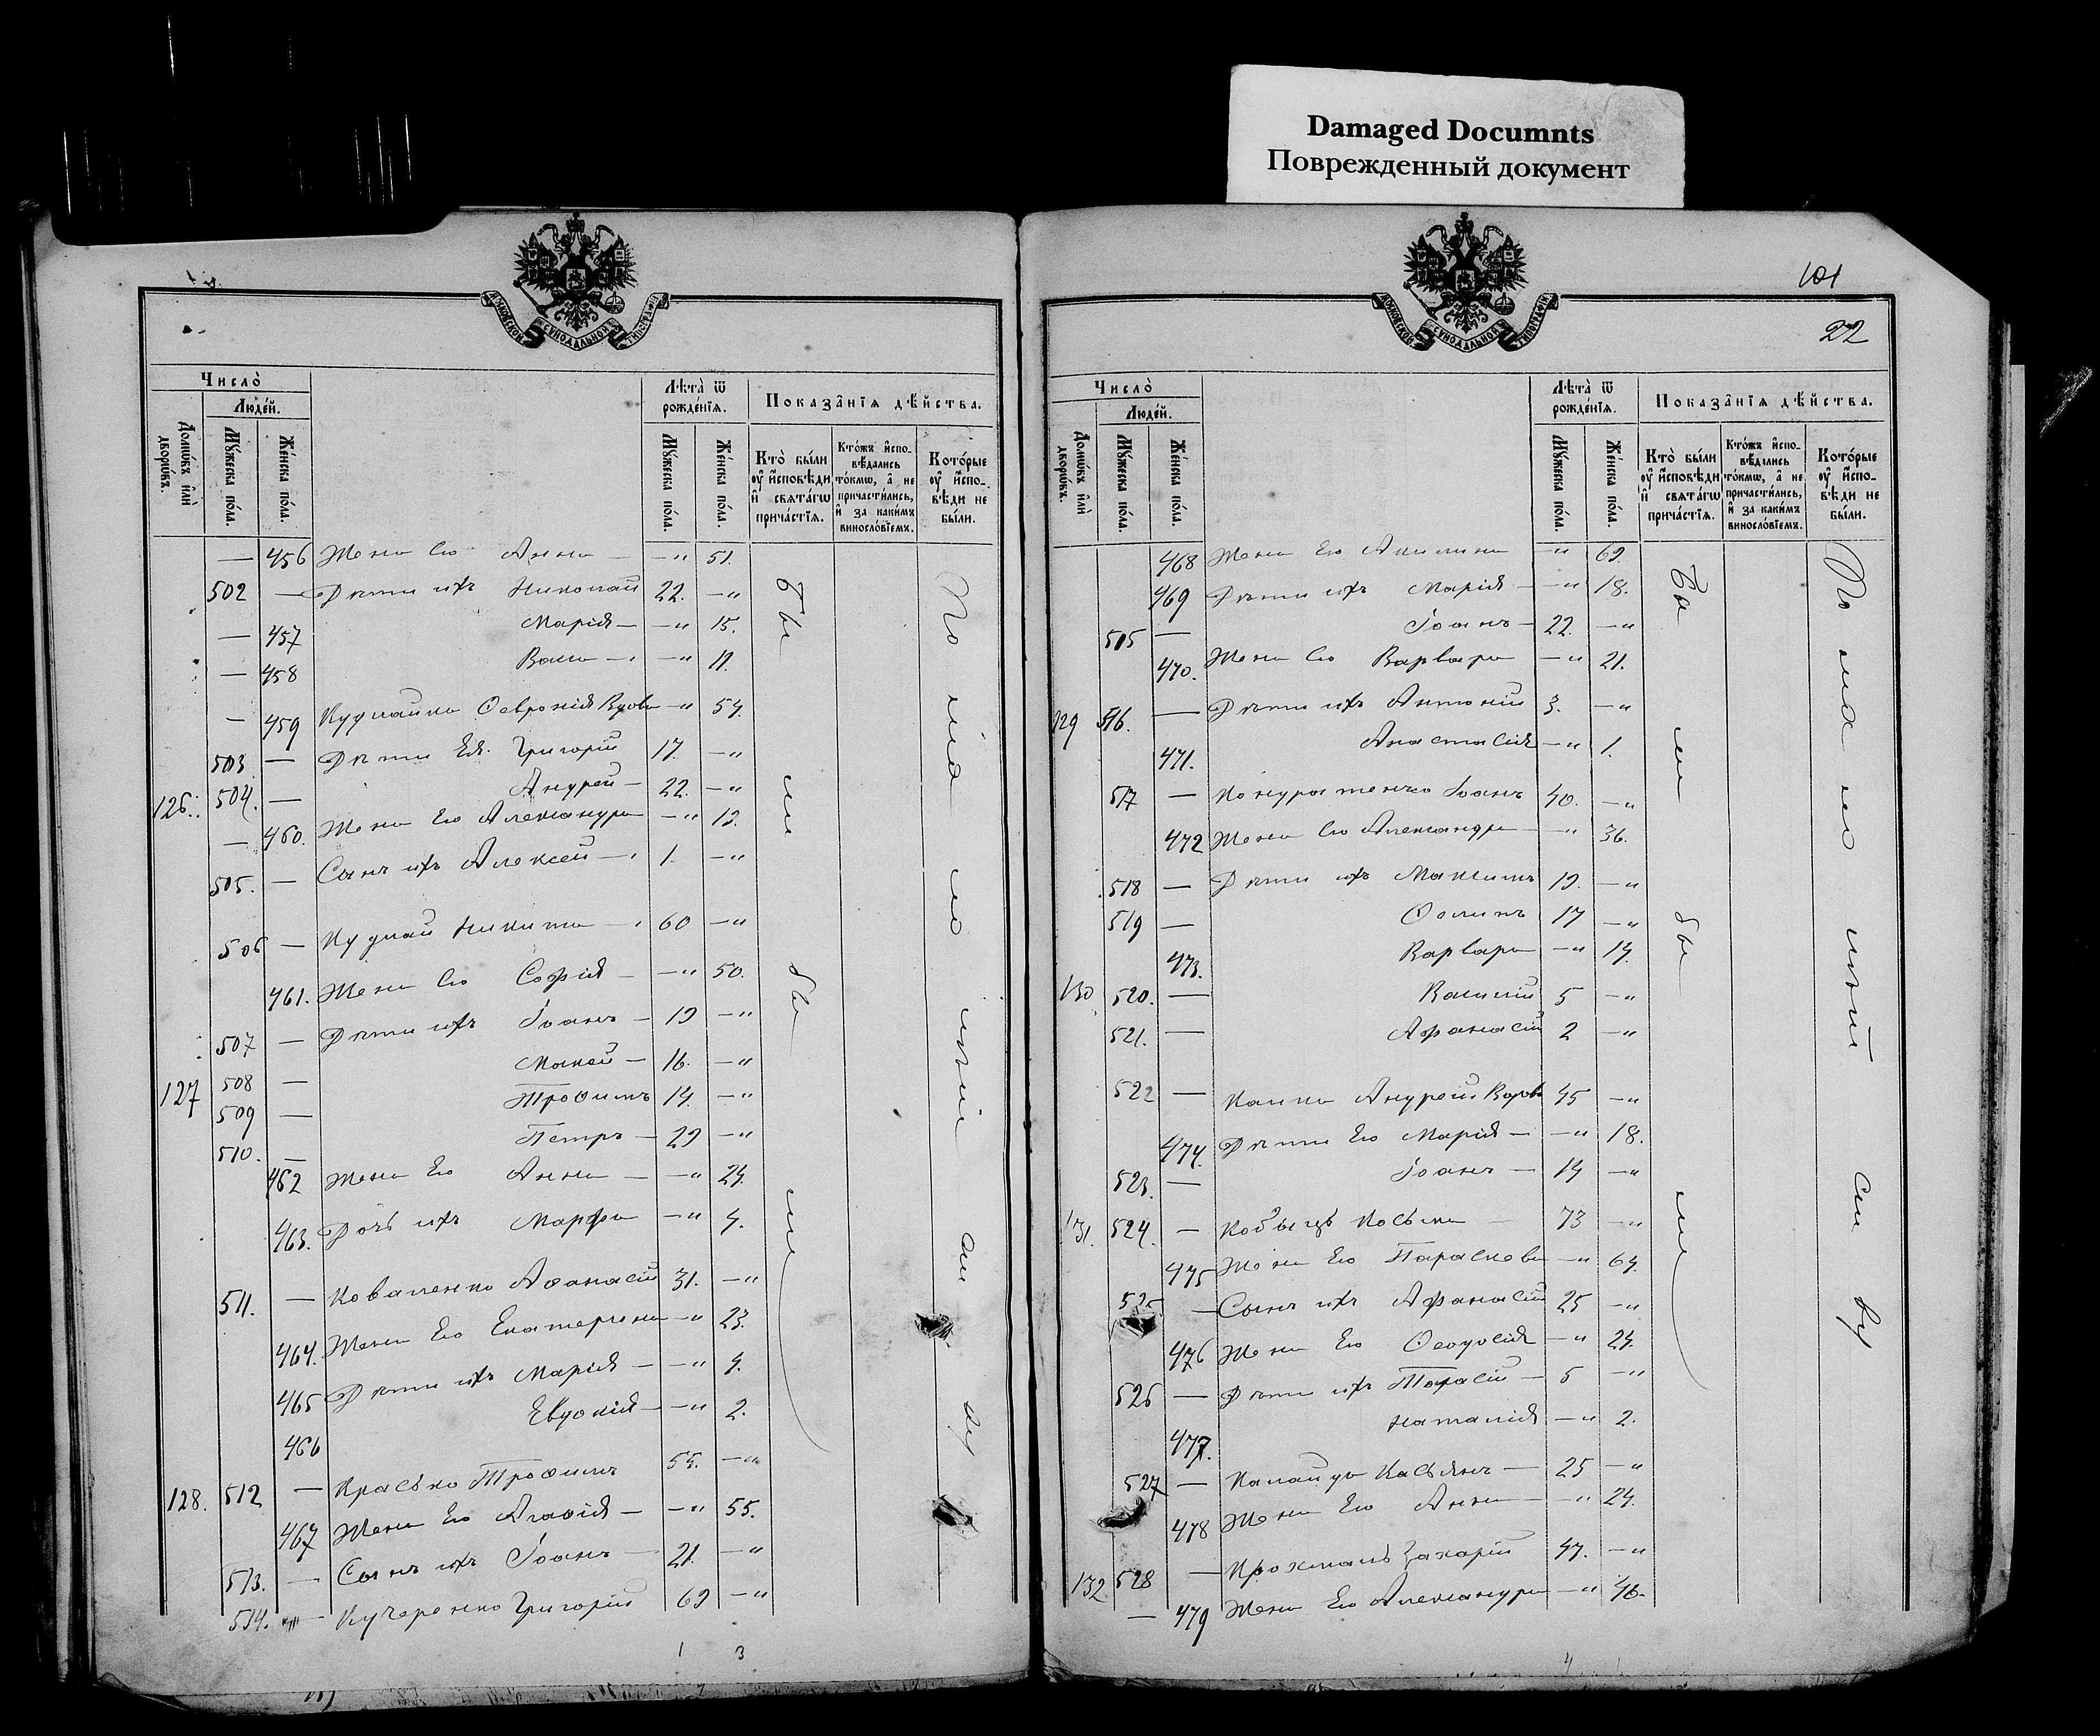 Damaged Documnts
Поврежденный документ
МОСКОВСКОЙ СѴНОДАЛЬНОЙ ТИПОГРАФІИ
Число̀
Людéй.
Домѡ́въ и҆лѝ дворѡ́въ.
Мꙋ́жеска по́ла.
Же́нска по́ла.
Лѣ́та ѿ рожде́нїѧ.
Мꙋ́жеска по́ла.
Же́нска по́ла.
Показа̑нїѧ дѣ́йства.
Кто̀ бы́ли оу҆ и҆сповѣ́ди и҆ свѧта́гѡ прича́стїѧ.
Кто́жъ и҆сповѣ́дались то́кмѡ, а҆ не причасти́лись, и҆ за каки́мъ винослові́емъ.
Кото́рые оу҆ и҆сповѣ́ди не бы́ли.
— 456 Жена Его Анна — —„ 51.
502 — Дѣти ихъ Николай 22. —„
— 457 Марія — —„ 15.
— 458 —„ 11.
— 459 Февронія Вдова —„ 54.
503 — Дѣти Ея Григорій 17. —„
126. 504. — Андрей — 22. —„
— 460. Жена Его Александра —„ 19.
505. — Сынъ ихъ Алексей — 1. —„
506 — Кудлай Никита — 60 —„
461. Жена Его Софія — —„ 50.
507 — Дѣти ихъ Іоанъ — 19 —„
127 508 — Мокей — 16. —„
509 — Трофимъ 14. —„
510. — Петръ — 29 —„
462 Жена Его Анна — —„ 24.
463. Дочь ихъ Марфа —„ 4.
511. — Коваленко Афанасій 31. —„
464. Жена Его Екатерина —„ 23.
465 Дѣти ихъ Марія — —„ 4.
466 Евдокія — —„ 2.
128. 512 — Красько Трофимъ 55. —„
467 Жена Его Агафія — —„ 55.
513. — Сынъ ихъ Іоанъ — 21. —„
514. — Кучеренко Григорій 69 —„
Бы ли бы ли
1 3
101
МОСКОВСКОЙ СѴНОДАЛЬНОЙ ТИПОГРАФІИ
22
Число̀
Людéй.
Домѡ́въ и҆лѝ дворѡ́въ.
Мꙋ́жеска по́ла.
Же́нска по́ла.
Лѣ́та ѿ рожде́нїѧ.
Мꙋ́жеска по́ла.
Же́нска по́ла.
Показа̑нїѧ дѣ́йства.
Кто̀ бы́ли оу҆ и҆сповѣ́ди и҆ свѧта́гѡ прича́стїѧ.
Кто́жъ и҆сповѣ́дались то́кмѡ, а҆ не причасти́лись, и҆ за каки́мъ винослові́емъ.
Кото́рые оу҆ и҆сповѣ́ди не бы́ли.
468 Жена Его Акилина —„ 69.
469 Дѣти ихъ Марія — —„ 18.
515 — Іоанъ — 22. —„
470. Жена Его Варвара —„ 21.
129 516. — Дѣти ихъ Антоній 3. —„
471. Анастасія —„ 1.
517 — Кондратенко Іоанъ 40. —„
472 Жена Его Александра —„ 36.
518 — Дѣти ихъ Максимъ 19. —„
519 — 17 —„
473. Варвара —„ 14.
130 520. — Василій 5 —„
521. — Афанасій 2 —„
522 — Андрей Вдовъ 45 —„
474. Дѣти Его Марія — —„ 18.
523. — Іоанъ — 14 —„
131. 524. — Косьма — 73 —„
475 Жена Его Параскева —„ 64.
525 — Сынъ ихъ Афанасій 25 —„
476 Жена Его Феодосія —„ 24.
526 — Дѣти ихъ Тарасій — 5 —„
477. Наталія —„ 2.
527 — Калайда Касьянъ — 25 —„
478 Жена Его Анна —„ 24.
132 528 — Крохмаль Захарій 47. —„
— 479 Жена Его Александра —„ 46.
Бы ли бы ли